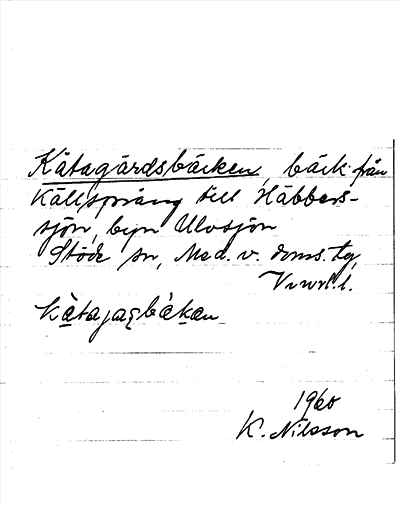 Kåtagårdsbäcken, bäck från
Källsprång till Häbbers-
sjön, byn Ulvsjön
Stöde sn, Med. v. doms. tg,
Vnrl. l.
1960
K. Nilsson